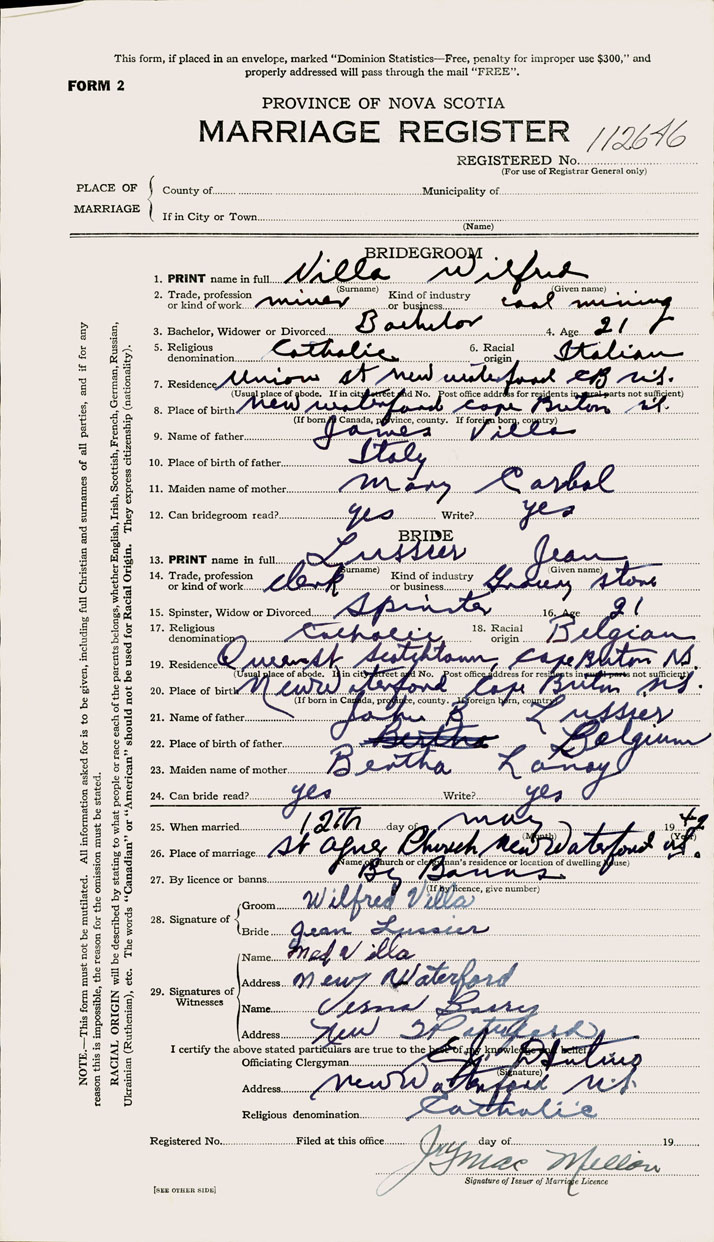 This form, if placed in an envelope, marked "Dominion Statistics—Free, penalty for improper use $300," and
properly addressed will pass through the mail "FREE".
FORM 2
PROVINCE OF NOVA SCOTIA
MARRIAGE REGISTER
112646
REGISTERED No.
(For use of Registrar General only)
PLACE OF MARRIAGE
County of Municipality of
If in City or Town
(Name)
BRIDEGROOM
1. PRINT name in full Villa Wilfred
(Surname) (Given name)
2. Trade, profession or kind of work miner Kind of industry or business coal mining
3. Bachelor, Widower or Divorced Bachelor 4. Age 21
5. Religious denomination Catholic 6. Racial origin Italian
7. Residence Union st new waterford CB n.s.
(Usual place of abode. If in city street and No. Post office address for residents in rural parts not sufficient)
8. Place of birth new waterford cape Breton n.s.
(If born in Canada, province, county. If foreign born, country)
9. Name of father James Villa
10. Place of birth of father Italy
11. Maiden name of mother Mary Carbol
12. Can bridegroom read? yes Write? yes
BRIDE
13. PRINT name in full Lussier Jean
(Surname) (Given name)
14. Trade, profession or kind of work clerk Kind of industry or business Grocery store
15. Spinster, Widow or Divorced Spinster 16. Age 21
17. Religious denomination Catholic 18. Racial origin Belgian
19. Residence Queen st Scotchtown, Cape Breton N.S.
(Usual place of abode. If in city street and No. Post office address for residents in rural parts not sufficient)
20. Place of birth New Waterford Cape Breton n.s.
(If born in Canada, province, county. If foreign born, country)
21. Name of father John B Lussier
22. Place of birth of father Bertha Belgium
23. Maiden name of mother Bertha Lanoy
24. Can bride read? yes Write? yes
25. When married 12th day of may 1949
(Month) (Year)
26. Place of marriage St Agnes Church New Waterford n.s.
(Name of church or clergyman's residence or location of dwelling house)
27. By licence or banns By Banns
(If by licence, give number)
28. Signature of
Groom Wilfred Villa
Bride Jean Lussier
29. Signatures of Witnesses
Name Villa
Address New Waterford
Name Verna Barry
Address New Waterford
I certify the above stated particulars are true to the best of my knowledge and belief
Officiating Clergyman
(Signature)
Address New Waterford N.S.
Religious denomination Catholic
Registered No. Filed at this office day of 19
MacMellon
Signature of Issuer of Marriage Licence
[SEE OTHER SIDE]
NOTE.—This form must not be mutilated. All information asked for is to be given, including full Christian and surnames of all parties, and if for any
reason this is impossible, the reason for the omission must be stated.
RACIAL ORIGIN will be described by stating to what people or race each of the parents belongs, whether English, Irish, Scottish, French, German, Russian,
Ukrainian (Ruthenian), etc. The words "Canadian" or "American" should not be used for Racial Origin. They express citizenship (nationality).